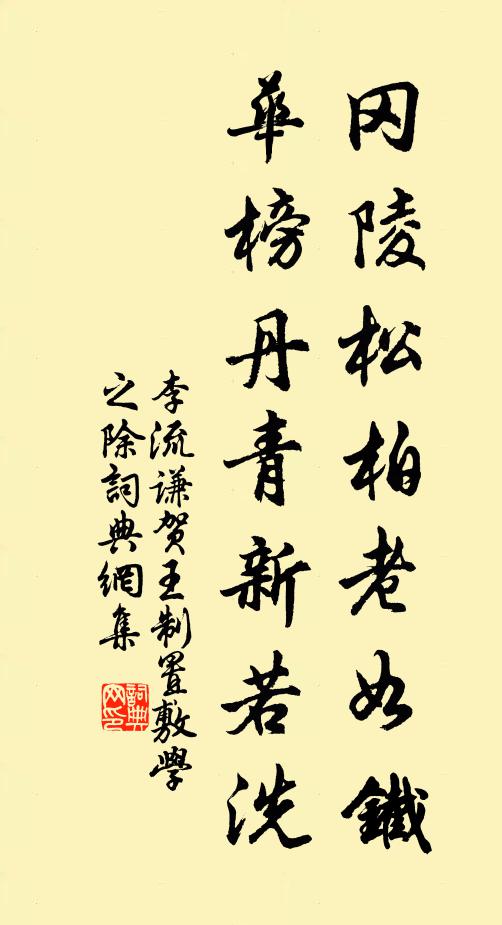 冈陵松柏老如鐵
華榜丹青新若洗
李流谦贺王制置敷學
之除詞典網集
詞典网印